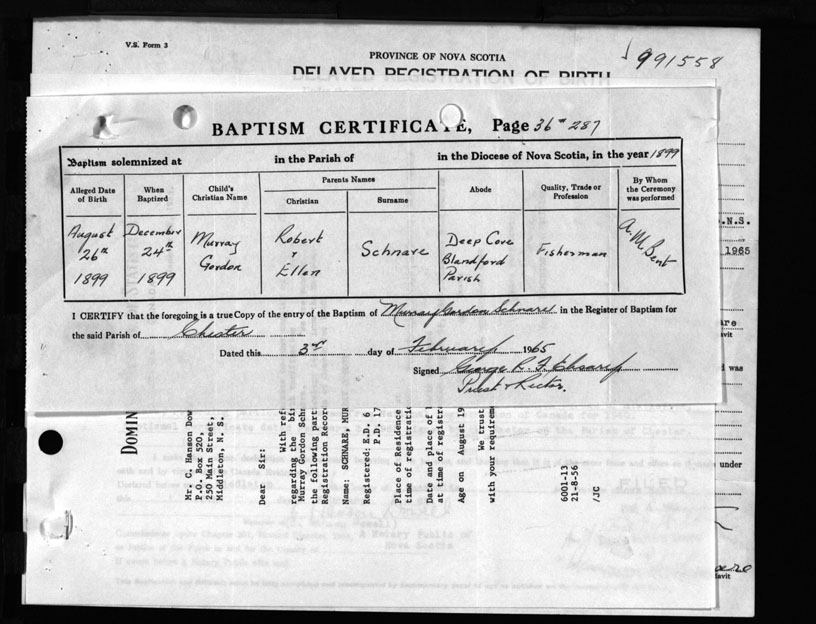 V.S. Form 3
PROVINCE OF NOVA SCOTIA
991558
DELAYED REGISTRATION OF BIRTH
BAPTISM CERTIFICATE, Page 36 # 287
Baptism solemnized at in the Parish of in the Diocese of Nova Scotia, in the year 1899
Alleged Date of Birth
When Baptized
Child's Christian Name
Parents Names
Christian
Surname
Abode
Quality, Trade or Profession
By Whom the Ceremony was performed
August 26th 1899
December 24th 1899
Murray Gordon
Robert & Ellen
Schnare
Deep Cove Blandford Parish
Fisherman
A. M. Bent
I CERTIFY that the foregoing is a true Copy of the entry of the Baptism of Murray Gordon Schnare in the Register of Baptism for
the said Parish of Chester
Dated this 3rd day of February 1965
Signed George R.
Priest & Rector.
.N.S.
1965
are
avit
was
under
avit
DOMIN
Mr. C. Hanson Dow
P.O. Box 520,
250 Main Street,
Middleton, N. S.
Dear Sir:
With ref
regarding the bi
Murray Gordon Sch
the following part
Registration Record
Name: SCHNARE, MUR
Registered: E.D. 6
P.D. 17
Place of Residence
time of registratio
Date and place of
at time of registra
Age on August 19
We trust
with your requireme
6001-13
21-8-56
/JC
FILED
A Notary Public of
Nova Scotia